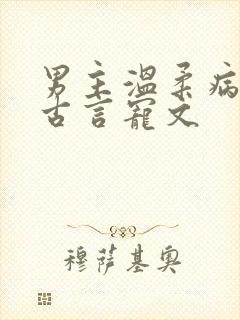 男主温柔病
古言寵文
穆薩基奧